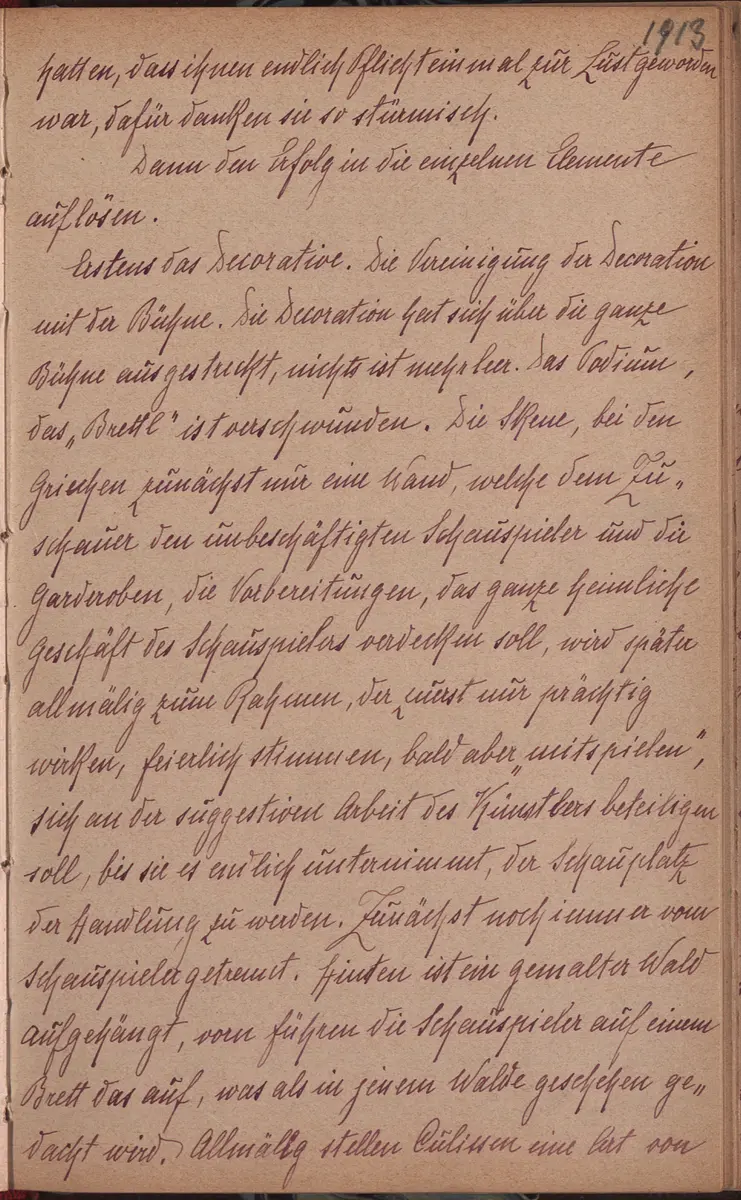 1913
hatten, dass ihnen endlich Pflicht einmal zur Lust geworden
war, dafür danken sie so stürmisch.
Dann den Erfolg in die einzelnen Elemente
auflösen.
Erstens das Decorative. Die Vereinigung der Decoration
mit der Bühne. Die Decoration hat sich über die ganze
Bühne ausgestreckt, nichts ist mehr leer. Das Podium,
das „Brettl" ist verschwunden. Die Skene, bei den
Griechen zunächst nur eine Wand, welche dem Zu„
schauer den unbeschäftigten Schauspieler und die
Garderoben, die Vorbereitungen, das ganze heimliche
Geschäft des Schauspielers verdecken soll, wird später
allmälig zum Rahmen, der zuerst nur prächtig
wirken, feierlich stimmen, bald aber „mitspielen",
sich an der suggestiven Arbeit des Künstlers beteiligen
soll, bis sie es endlich unternimmt, der Schauplatz
der Handlung zu werden. Zunächst noch immer vom
Schauspieler getrennt. Hinten ist ein gemalter Wald
aufgehängt, vorn führen die Schauspieler auf einem
Brett das auf, was als in jenem Walde geschehen ge„
dacht wird. Allmälig stellen Culissen eine Art von